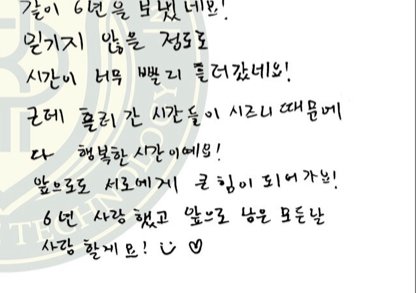 같이 6년을 보냈네요!
믿기지 않을 정도로
시간이 너무 빨리 흘러갔네요!
근데 흘러 간 시간들이 시즈니 때문에
다 행복한 시간이예요!
앞으로도 서로에게 큰 힘이 되어 가요!
6년 사랑 했고 앞으로 남은 모든날
사랑 할게요!
TECHNOLOGY